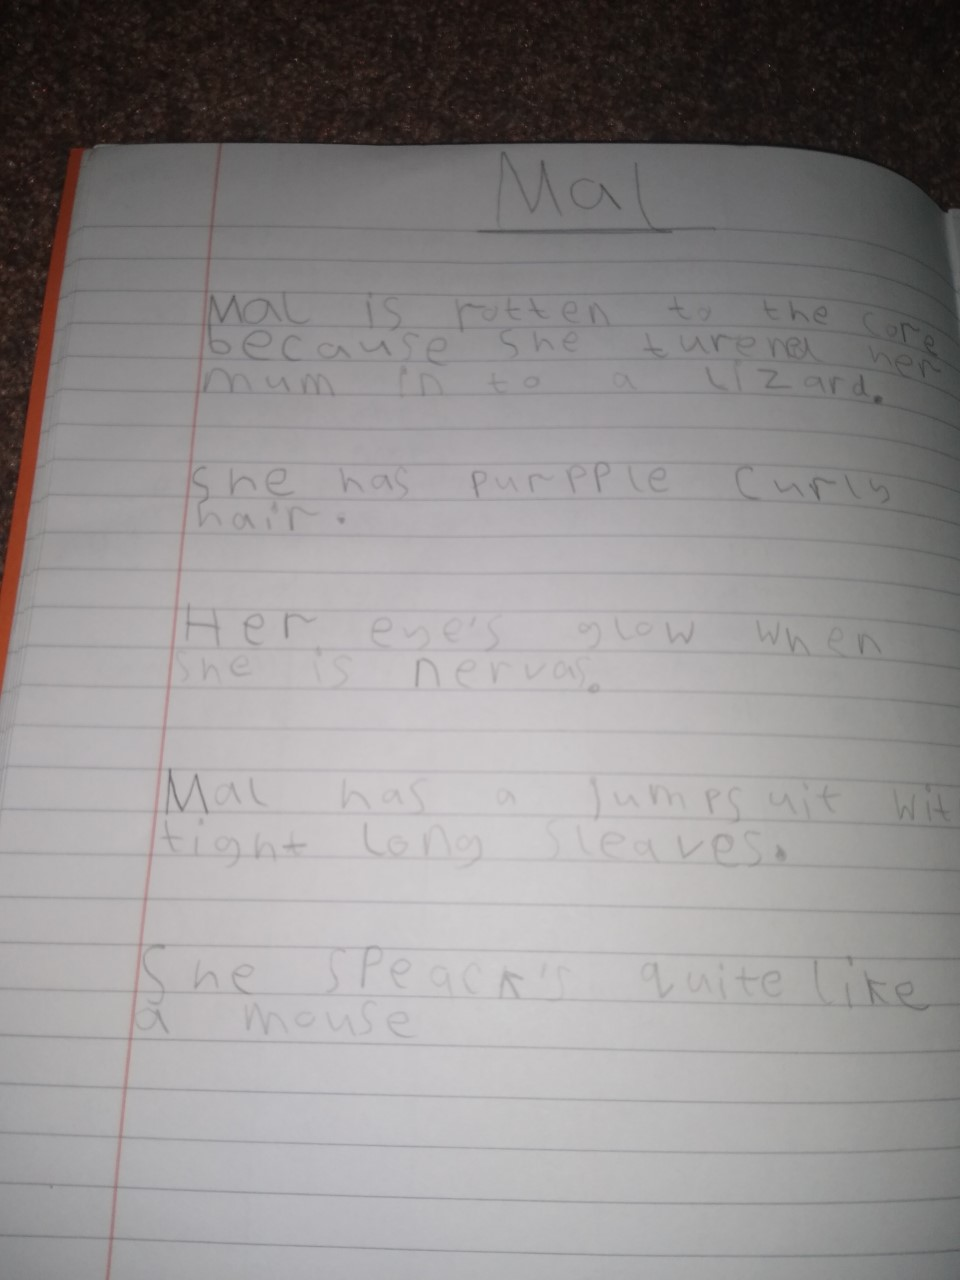 Mal
Mal is rotten to the core
because she turend her
mum in to a lizard.
She has purpple curly
hair.
Her eye's glow when
she is nervas.
Mal has a jumpsuit wit
tight long sleaves.
She speack's quite like
a mouse